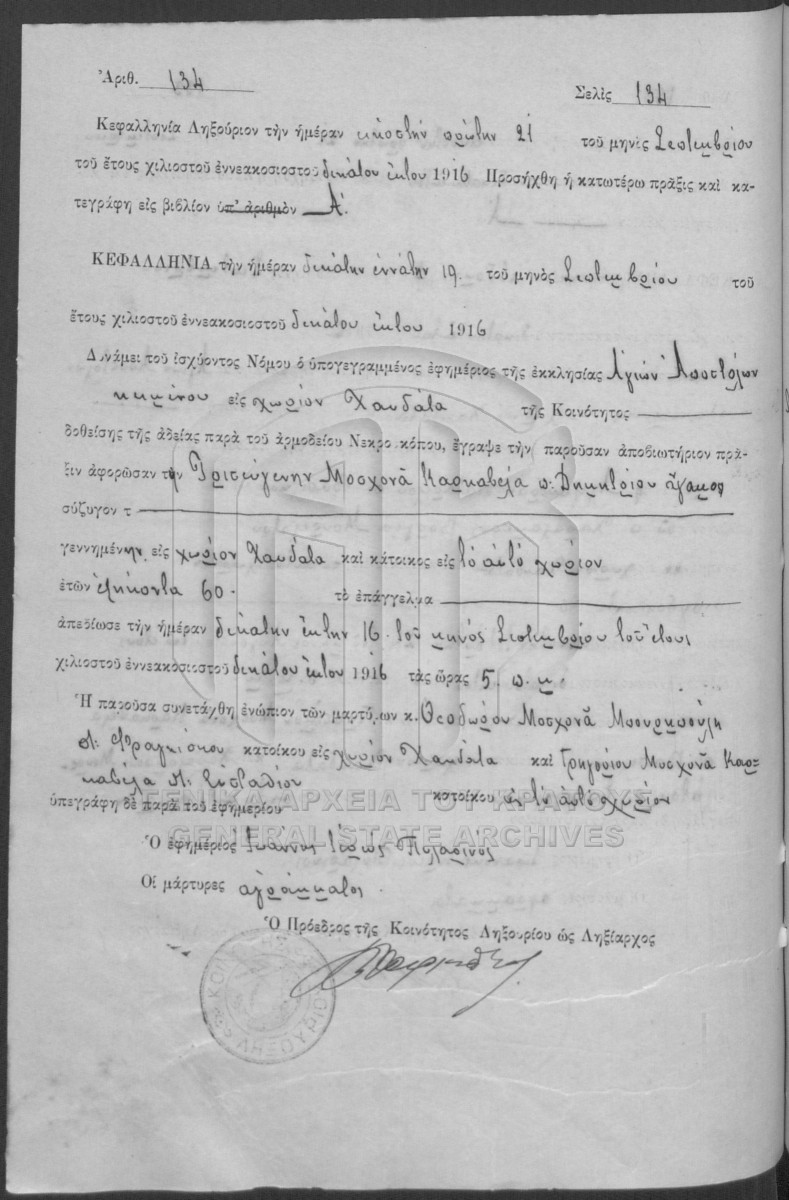 Ἀριθ. 134
Σελὶς 134
Κεφαλληνία Ληξούριον τὴν ἡμέραν εἰκοστὴν πρώτην 21 τοῦ μηνὸς Σεπτεμβρίου
τοῦ ἔτους χιλιοστοῦ ἐννεακοσιοστοῦ δεκάτου ἕκτου 1916 Προσήχθη ἡ κατωτέρω πρᾶξις καὶ κα-
τεγράφη εἰς βιβλίον ὑπ' ἀριθμὸν Α.
ΚΕΦΑΛΛΗΝΙΑ τὴν ἡμέραν δεκάτην ἐννάτην 19. τοῦ μηνὸς Σεπτεμβρίου τοῦ
ἔτους χιλιοστοῦ ἐννεακοσιοστοῦ δεκάτου ἕκτου 1916
Δυνάμει τοῦ ἰσχύοντος Νόμου ὁ ὑπογεγραμμένος ἐφημέριος τῆς ἐκκλησίας Ἁγίων Ἀποστόλων
κειμένου εἰς χωρίον Χαυδάτα τῆς Κοινότητος
δοθείσης τῆς ἀδείας παρὰ τοῦ ἁρμοδείου Νεκροσκόπου, ἔγραψε τὴν παροῦσαν ἀποβιωτήριον πρᾶ-
ξιν ἀφορῶσαν τὴν Τρισεύγενην Μοσχονᾶ Καρκαβέλα π. Δημητρίου ἄγαμος
σύζυγον τ
γεννημένην εἰς χωρίον Χαυδάτα καὶ κάτοικος εἰς τὸ αὐτὸ χωρίον
ἐτῶν ἑξήκοντα 60. τὸ ἐπάγγελμα
ἀπεβίωσε τὴν ἡμέραν δεκάτην ἕκτην 16. τοῦ μηνὸς Σεπτεμβρίου τοῦ ἔτους
χιλιοστοῦ ἐννεακοσιοστοῦ δεκάτου ἕκτου 1916 τὰς ὥρας 5. π. μ.
Ἡ παροῦσα συνετάχθη ἐνώπιον τῶν μαρτύρων κ. Θεοδώρου Μοσχονᾶ
π. Φραγκίσκου κατοίκου εἰς χωρίον Χαυδάτα καὶ Γρηγορίου Μοσχονᾶ Καρ-
καβέλα π. Εὐσταθίου κατοίκου εἰς τὸ αὐτὸ χωρίον
ὑπεγράφη δὲ παρὰ τοῦ ἐφημερίου
ΓΕΝΙΚΑ ΑΡΧΕΙΑ ΤΟΥ ΚΡΑΤΟΥΣ
GENERAL STATE ARCHIVES
Ὁ ἐφημέριος Ἰωάννης Ἱερεὺς
Οἱ μάρτυρες ἀγράμματοι.
Ὁ Πρόεδρος τῆς Κοινότητος Ληξουρίου ὡς Ληξίαρχος